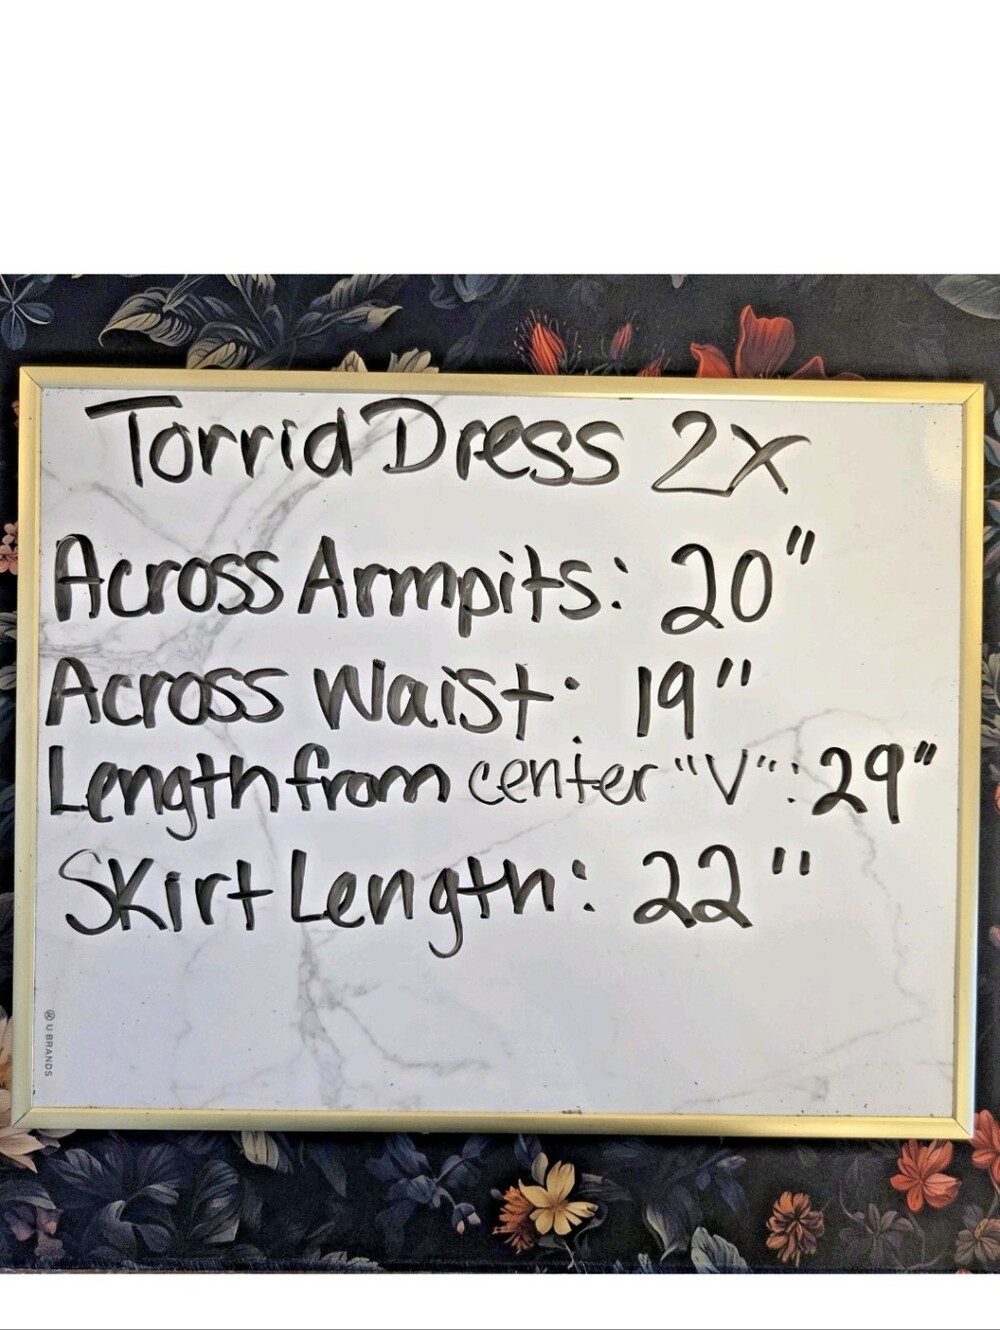 Torrid Dress 2X
Across Armpits: 20"
Across Waist: 19"
Length from center "V": 29"
Skirt Length: 22"
U BRANDS